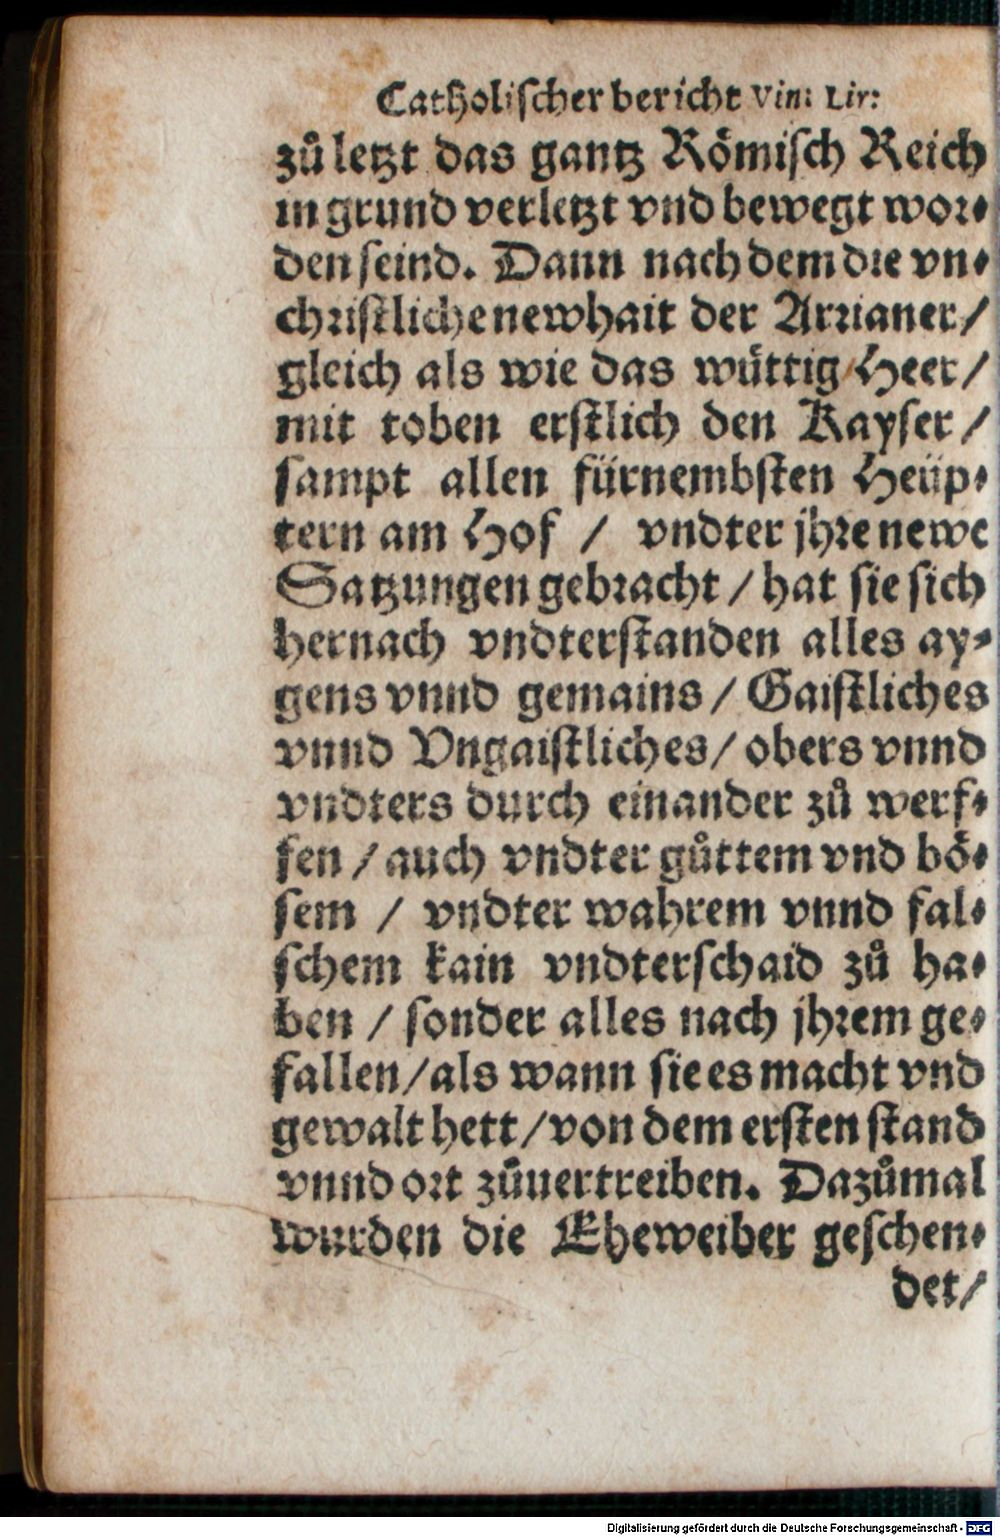 Catholischer bericht Vin: Lir:
zů letzt das gantz Römisch Reich
in grund verletzt vnd bewegt wor⸗
den seind. Dann nach dem die vn⸗
christliche newhait der Arrianer/
gleich als wie das wüttig Heer/
mit toben erstlich den Kayser/
sampt allen fürnembsten Heüp⸗
tern am Hof / vndter jhre newe
Satzungen gebracht / hat sie sich
hernach vndterstanden alles ay⸗
gens vnnd gemains / Gaistliches
vnnd Vngaistliches/ obers vnnd
vndters durch einander zů werf⸗
fen / auch vndter gůttem vnd bö⸗
sem / vndter wahrem vnnd fal⸗
schem kain vndterschaid zů ha⸗
ben / sonder alles nach jhrem ge⸗
fallen/als wann sie es macht vnd
gewalt hett/von dem ersten stand
vnnd ort zůuertreiben. Dazůmal
wurden die Eheweiber geschen⸗
det/
Digitalisierung gefördert durch die Deutsche Forschungsgemeinschaft - DFG